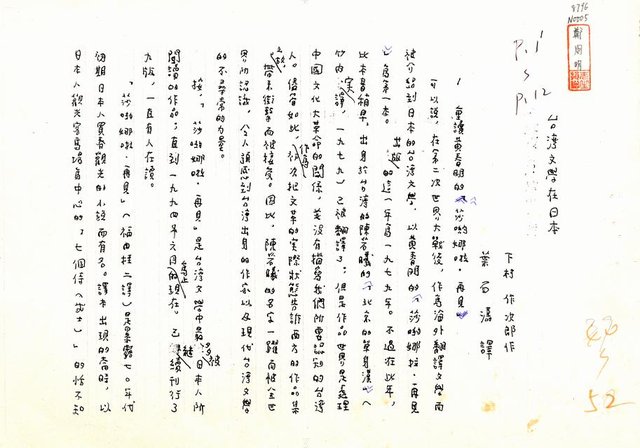 9396
N0005
鄭烱明
P.1
5
P.12
台灣文學在日本
下村作次郎作
葉石濤譯
1 重讀黃春明的「莎喲娜啦・再見」
可以說，在第二次世界大戰後，作為海外翻譯文學而
被介紹到日本的台灣文學，以黃春明的「莎喲娜啦・再見
」為第一本。出版的這一年為一九七九年。不過在此年，
比本書稍早，出身於台灣的陳若曦的「北京的單身漢」（
竹內實譯，一九七九）已被翻譯了；但是作品世界是處理
中國文化大革命的關係，並沒有描寫我們所要認知的台灣
人。儘管如此，作為初次把文革的實際狀態告訴西方的作品集
之故，帶來衝擊而被接受。因此，陳若曦的名字一躍而被全世
界所認識，令人預感到台灣出身的作家以及現代台灣文學
的不尋常的力量。
按，「莎喲娜啦・再見」是台灣文學中最多被日本人所
閱讀的作品；直到一九九四年六月為止的現在，已經發刊行了
九版，一直有人在讀。
「莎喲娜啦・再見」（福田桂二譯）是暴露七〇年代
初期日本人買春觀光的小說而有名。譯本出現的當時，以
日本人觀光客為場為中心的「七個侍（武士）」的恬不知
52